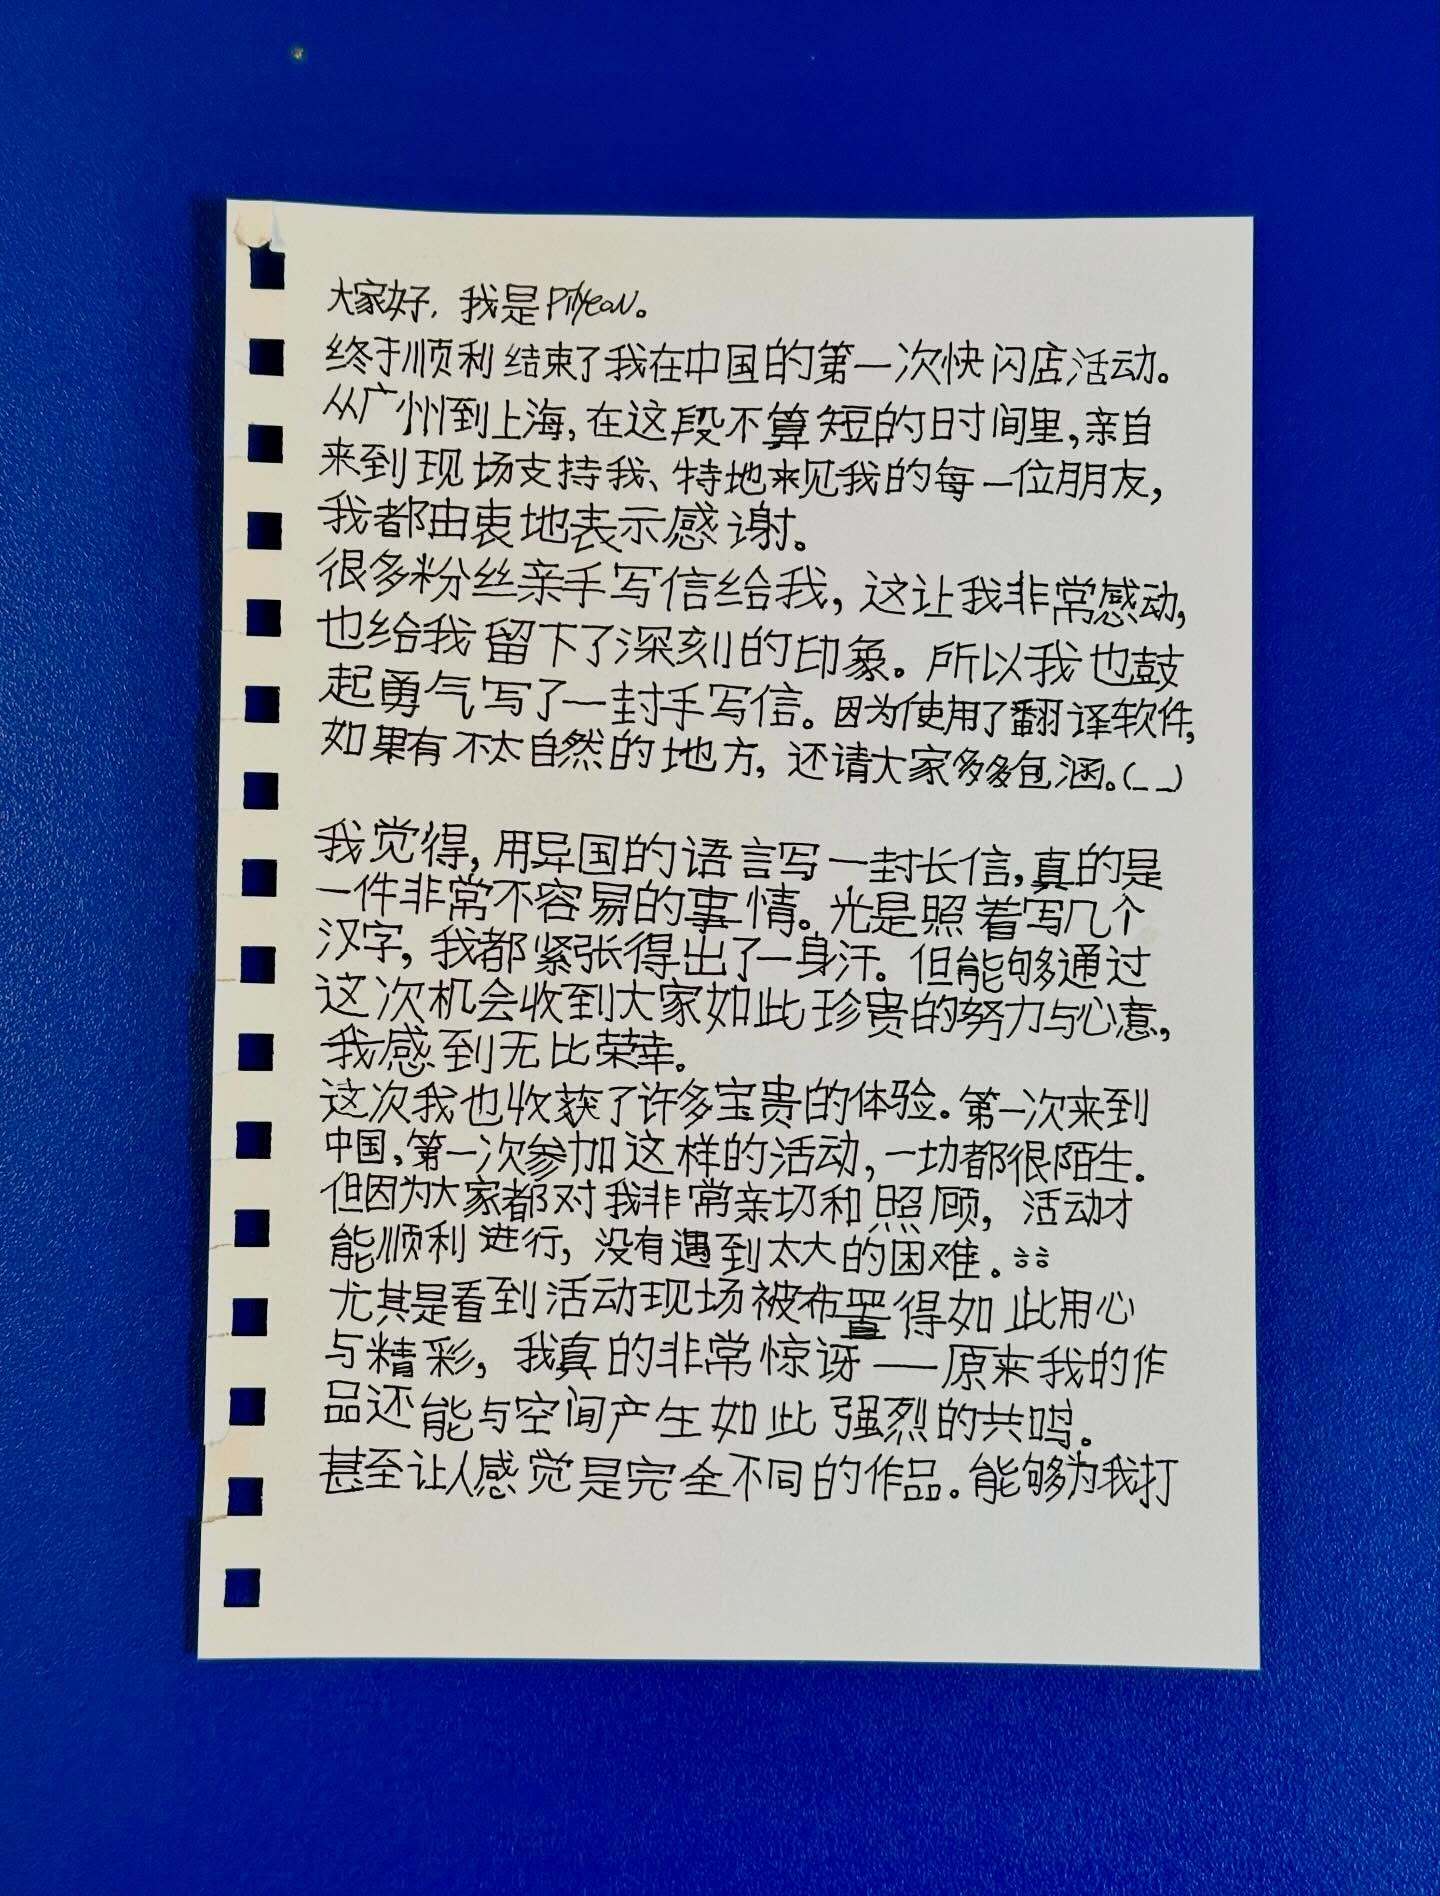 大家好，我是PilYeoN。
终于顺利结束了我在中国的第一次快闪店活动。
从广州到上海，在这段不算短的时间里，亲自
来到现场支持我、特地来见我的每一位朋友，
我都由衷地表示感谢。
很多粉丝亲手写信给我，这让我非常感动，
也给我留下了深刻的印象。所以我也鼓
起勇气写了一封手写信。因为使用了翻译软件，
如果有不太自然的地方，还请大家多多包涵。(_ _)
我觉得，用异国的语言写一封长信，真的是
一件非常不容易的事情。光是照着写几个
汉字，我都紧张得出了一身汗。但能够通过
这次机会收到大家如此珍贵的努力与心意，
我感到无比荣幸。
这次我也收获了许多宝贵的体验。第一次来到
中国，第一次参加这样的活动，一切都很陌生。
但因为大家都对我非常亲切和照顾，活动才
能顺利进行，没有遇到太大的困难。ㅎㅎ
尤其是看到活动现场被布置得如此用心
与精彩，我真的非常惊讶——原来我的作
品还能与空间产生如此强烈的共鸣。
甚至让人感觉是完全不同的作品。能够为我打